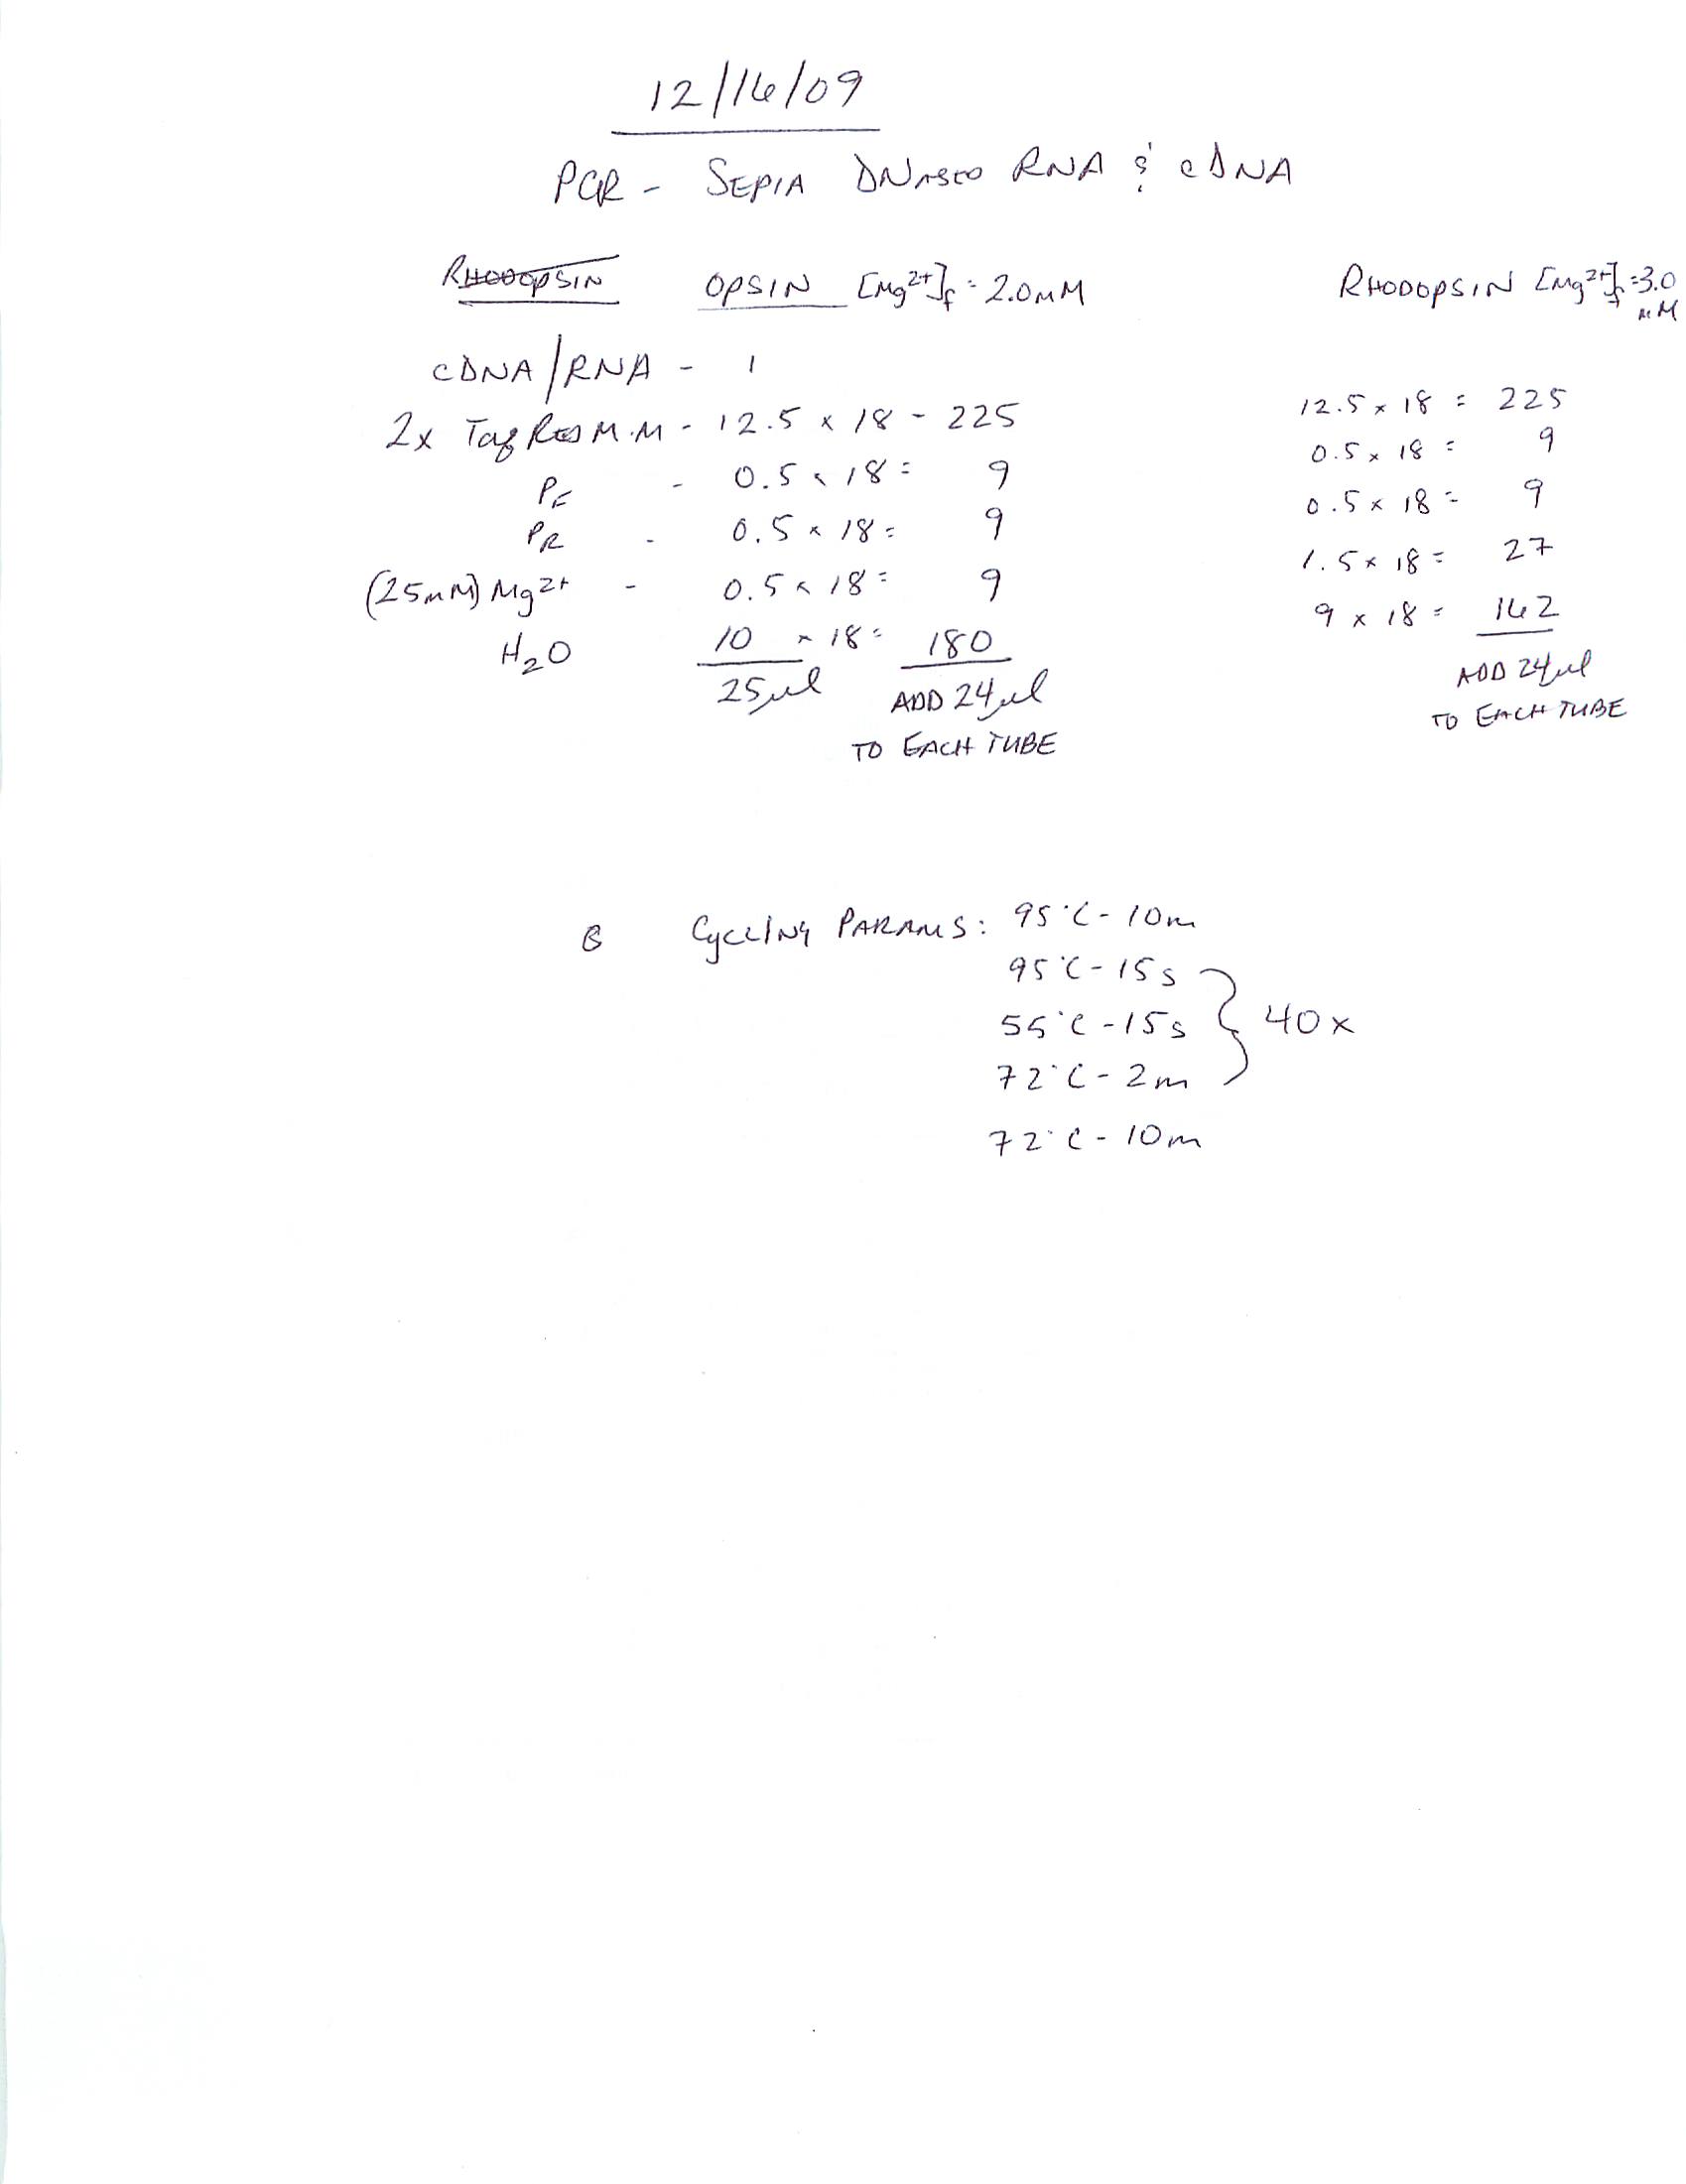 12/16/09
PCR - SEPIA DNASED RNA & cDNA
RHODOPSIN OPSIN [Mg2+]f = 2.0mM RHODOPSIN [Mg2+]f = 3.0 mM
cDNA/RNA - 1
2x Taq M.M - 12.5 x 18 - 225 12.5 x 18 = 225
PF - 0.5 x 18 = 9 0.5 x 18 = 9
PR - 0.5 x 18 = 9 0.5 x 18 = 9
(25mM) Mg2+ - 0.5 x 18 = 9 1.5 x 18 = 27
H2O 10 x 18 = 180 9 x 18 = 162
25µl ADD 24µl ADD 24µl
TO EACH TUBE TO EACH TUBE
CYCLING PARAMS: 95°C - 10m
95°C - 15s
55°C - 15s } 40x
72°C - 2m
72°C - 10m